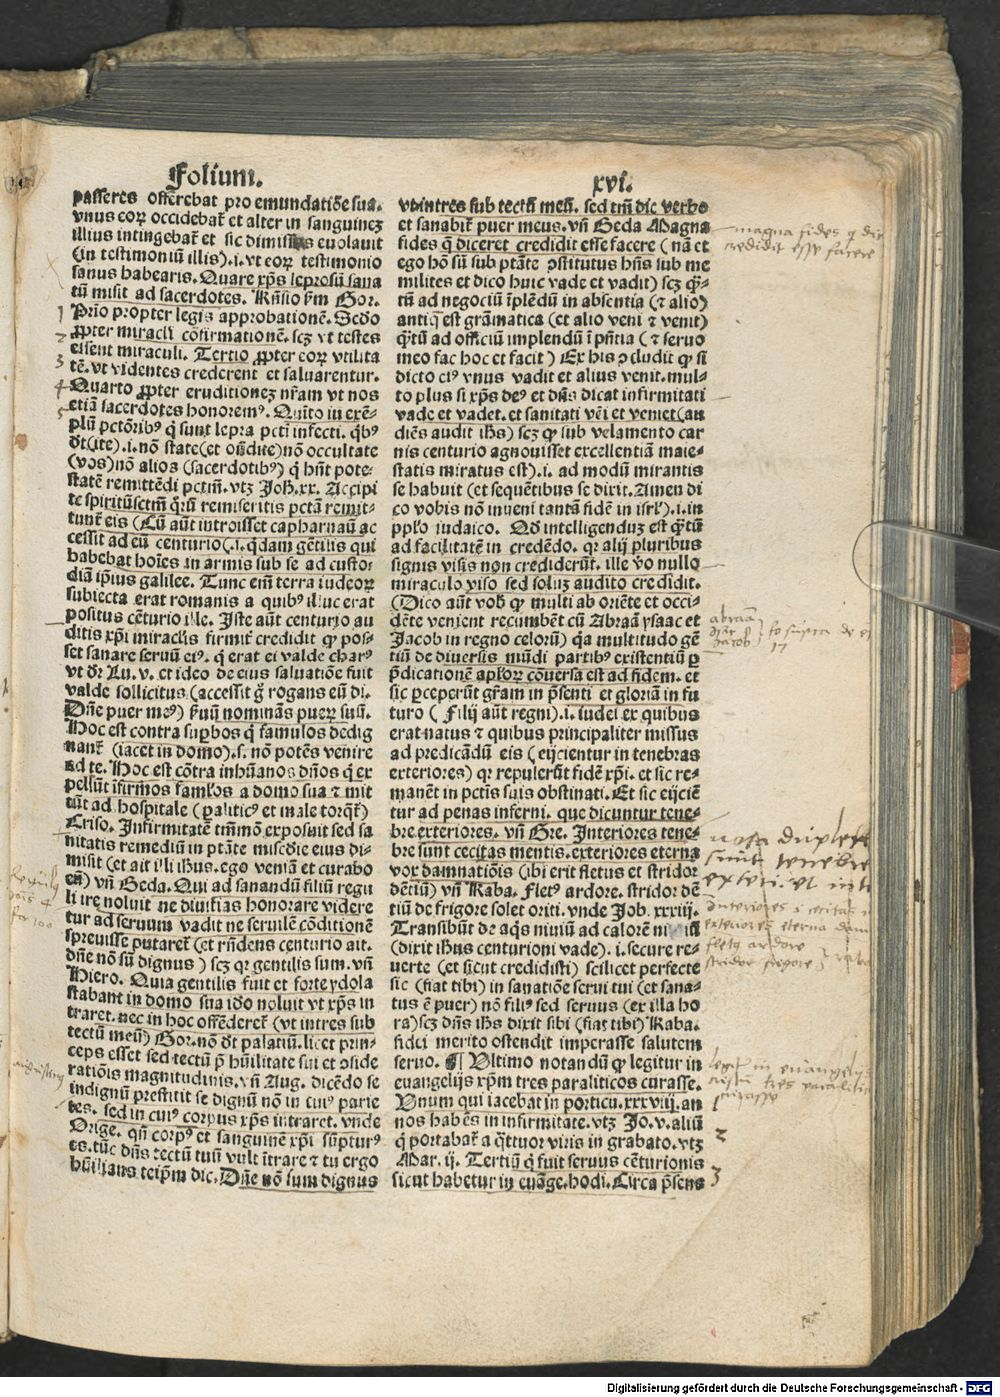 Folium. xvi.
passeres offerebat pro emundatiõe sua.
vnus eoꝝ occidebat̃ et alter in sanguinez
illius intingebat̃ et sic dimissus euolauit
(in testimoniũ illis).i.vt eoꝝ testimonio
sanus habearis. Quare xp̃s leprosũ sana
tũ misit ad sacerdotes. Rñsio ẜm Gor.
Prio propter legis approbationẽ. Scďo
ꝓpter miracĺi cõfirmationẽ. scꝫ vt testes
essent miraculi. Tertio ꝓpter eoꝝ vtilita
tẽ. vt videntes crederent et saluarentur.
Quarto ꝓpter eruditionez nr̃am vt nos
etiã sacerdotes honoremꝰ. Quĩto in exẽ-
plũ pctõribꝰ q̃ sunt lepra pcti infecti. q̃bꝰ
dt̃(ite).i.nõ state(et ostẽdite)nõ occultate
(vos)nõ alios (sacerdotibꝰ) q̃ hñt pote-
statẽ remittẽdi pctm̃. vtꝫ Joh̃.xx. Accipi
te spiritũsctm̃ q̃rũ remiseritis pctã remit-
tunt̃ eis (Cũ aũt introisset capharnaũ ac
cessit ad eũ centurio(.i.q̃dam gẽtilis qui
habebat hoĩes in armis sub se ad custo
diã ip̃ius galilee. Tunc em̃ terra iudeoꝝ
subiecta erat romanis a quibꝰ illuc erat
positus cẽturio ille. Iste aũt centurio au
ditis xp̃i miraclis firmit̃ credidit ꝙ pos-
set sanare seruũ eiꝰ. q̃ erat ei valde charꝰ
vt dr̃ Lu.v. et ideo de eius saluatiõe fuit
valde sollicitus (accessit g̃ rogans eũ di.
Dñe puer meꝰ) ẜuũ nominãs pueꝝ suũ.
Hoc est contra suꝑbos q̃ famulos dedig
nant̃ (iacet in domo).s. nõ potẽs venire
ad te. Hoc est cõtra inhũanos dños q̃ ex
pellũt ĩfirmos famĺos a domo sua ⁊ mit
tũt ad hospitale (paliticꝰ et male torq̃t̃)
Criso. Infirmitatẽ tm̃mõ exposuit sed sa
nitatis remediũ in ptãte miscďie eius di-
misit (et ait illi ihũs. ego veniã et curabo
eũ) vñ Beda. Qui ad sanandũ filiũ regu
li ire noluit ne diuitias honorare videre
tur ad seruum vadit ne seruilẽ cõditionẽ
spreuisse putaret̃ (et rñdens centurio ait.
dñe nõ sũ dignus) scꝫ qꝛ gentilis sum. vñ
Hiero. Quia gentilis fuit et forte ydola
stabant in domo sua iďo noluit vt xp̃s in
traret. nec in hoc offẽderet̃ (vt intres sub
tectũ meũ) Gor. nõ dt̃ palatiũ. licet prin-
ceps esset sed tectũ ꝓ hũilitate sui et ꝯside
ratiõis magnitudinis. vñ Aug. dicẽdo se
indignũ prestitit se dignũ nõ in cuiꝰ parie
tes. sed in cuiꝰ corpus xp̃s intraret. vnde
Orige. qñ corpꝰ et sanguinẽ xp̃i sũpturꝰ
es. tũc dñs tectũ tuũ vult ĩtrare ⁊ tu ergo
hũilians teip̃m dic. Dñe nõ sum dignus
vt intres sub tectũ meũ. sed tm̃ dic verbo
et sanabit̃ puer meus. vñ Beda Magna
fides q̃ diceret credidit esse facere (nã et
ego hõ sũ sub ptãte ꝯstitutus hñs sub me
milites et dico huic vade et vadit) scꝫ q̃ꝫ-
tũ ad negociũ ĩplẽdũ in absentia (⁊ alio)
antiq̃ est grãmatica (et alio veni ⁊ venit)
q̃ꝫtũ ad officiũ implendũ ĩ pñtia (⁊ seruo
meo fac hoc et facit) Ex his ꝯcludit ꝙ si
dicto eiꝰ vnus vadit et alius venit. mul-
to plus si xp̃s deꝰ et dñs dicat infirmitati
vade et vadet. et sanitati vẽi et veniet(au
diẽs audit ihũs) scꝫ ꝙ sub velamento car
nis centurio agnouisset excellentiã maie-
statis miratus est).i. ad modũ mirantis
se habuit (et sequẽtibus se dixit. Amen di
co vobis nõ inueni tantã fidẽ in isrĺ).i.in
ppĺo iudaico. Qď intelligenduz est q̃ꝫtũ
ad facilitatẽ in credẽdo. qꝛ alij pluribus
signis visis non crediderũt. ille ṽo nullo
miraculo viso sed soluꝫ audito credidit.
(Dico aũt vob̃ ꝙ multi ab oriẽte et occi-
dẽte venient recumbẽt cũ Abraã ysaac et
Jacob in regno celorũ) q̃a multitudo gẽ
tiũ de diuersis mũdi partibꝰ existentiũ ꝑ
p̃dicationẽ apĺoꝝ cõuersa est ad fidem. et
sic ꝑceperũt gr̃am in p̃senti et gloriã in fu
turo ( Filij aũt regni).i. iudei ex quibus
erat natus ⁊ quibus principaliter missus
ad predicãdũ eis (eijcientur in tenebras
exteriores) qꝛ repulerũt fidẽ xp̃i. et sic re-
manẽt in pctĩs suis obstinati. Et sic eijciẽ
tur ad penas inferni. que dicuntur tene-
bre exteriores. vñ Gre. Interiores tene-
bre sunt cecitas mentis. exteriores eterna
vox damnatiõis (ibi erit fletus et stridor
dẽtiũ) vñ Raba. Fletꝰ ardore. stridor dẽ
tiũ de frigore solet oriri. vnde Job.xxiiij.
Transibũt de aq̃s niuiũ ad calorẽ
(dixit ihũs centurioni vade).i. secure re-
uerte (et sicut credidisti) scilicet perfecte
sic (fiat tibi) in sanatiõe serui tui (et sana-
tus ẽ puer) nõ filiꝰ sed seruus (ex illa ho
ra)scꝫ dñs ihũs dixit sibi (fiat tibi) Raba.
fidei merito ostendit imperasse salutem
seruo. ¶ Vltimo notandũ ꝙ legitur in
euangelijs xp̃m tres paraliticos curasse.
Vnum qui iacebat in porticu.xxxviij.an
nos habẽs in infirmitate. vtꝫ Jo.v. aliũ
q̃ portabat̃ a q̃ttuor viris in grabato. vtꝫ
Mar.ij. Tertiũ q̃ fuit seruus cẽturionis
sicut habetur in euãge. hodi. Circa p̃sens
1
2
3
4
5
magna fides q dic
credidit esse facere
abraã
Jacob
17
nota duplices
sunt tenebre
exteri. et inte
Interiores i cecitas
exteriores eterna dam
fletꝰ ardore
stridor frigore
legit̃ in euangelijs
xp̃m tres paraliticos
curasse
1
2
3
Digitalisierung gefördert durch die Deutsche Forschungsgemeinschaft - DFG